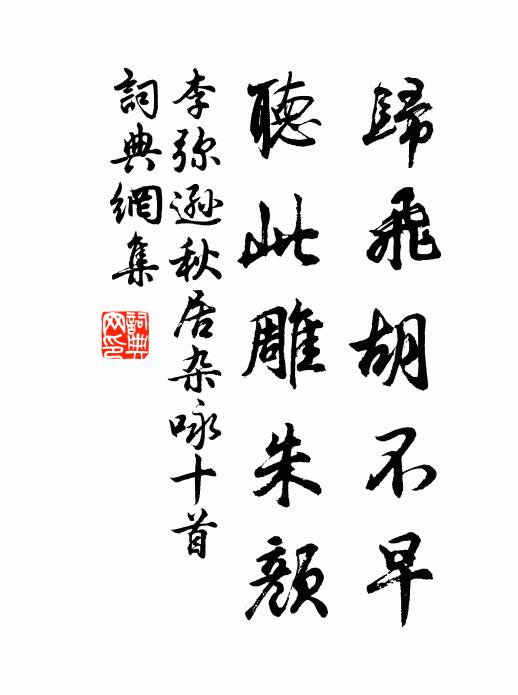 歸飛胡不早
聽此雕朱顏
李弥遜秋居杂咏十首
詞典網集
詞典網印